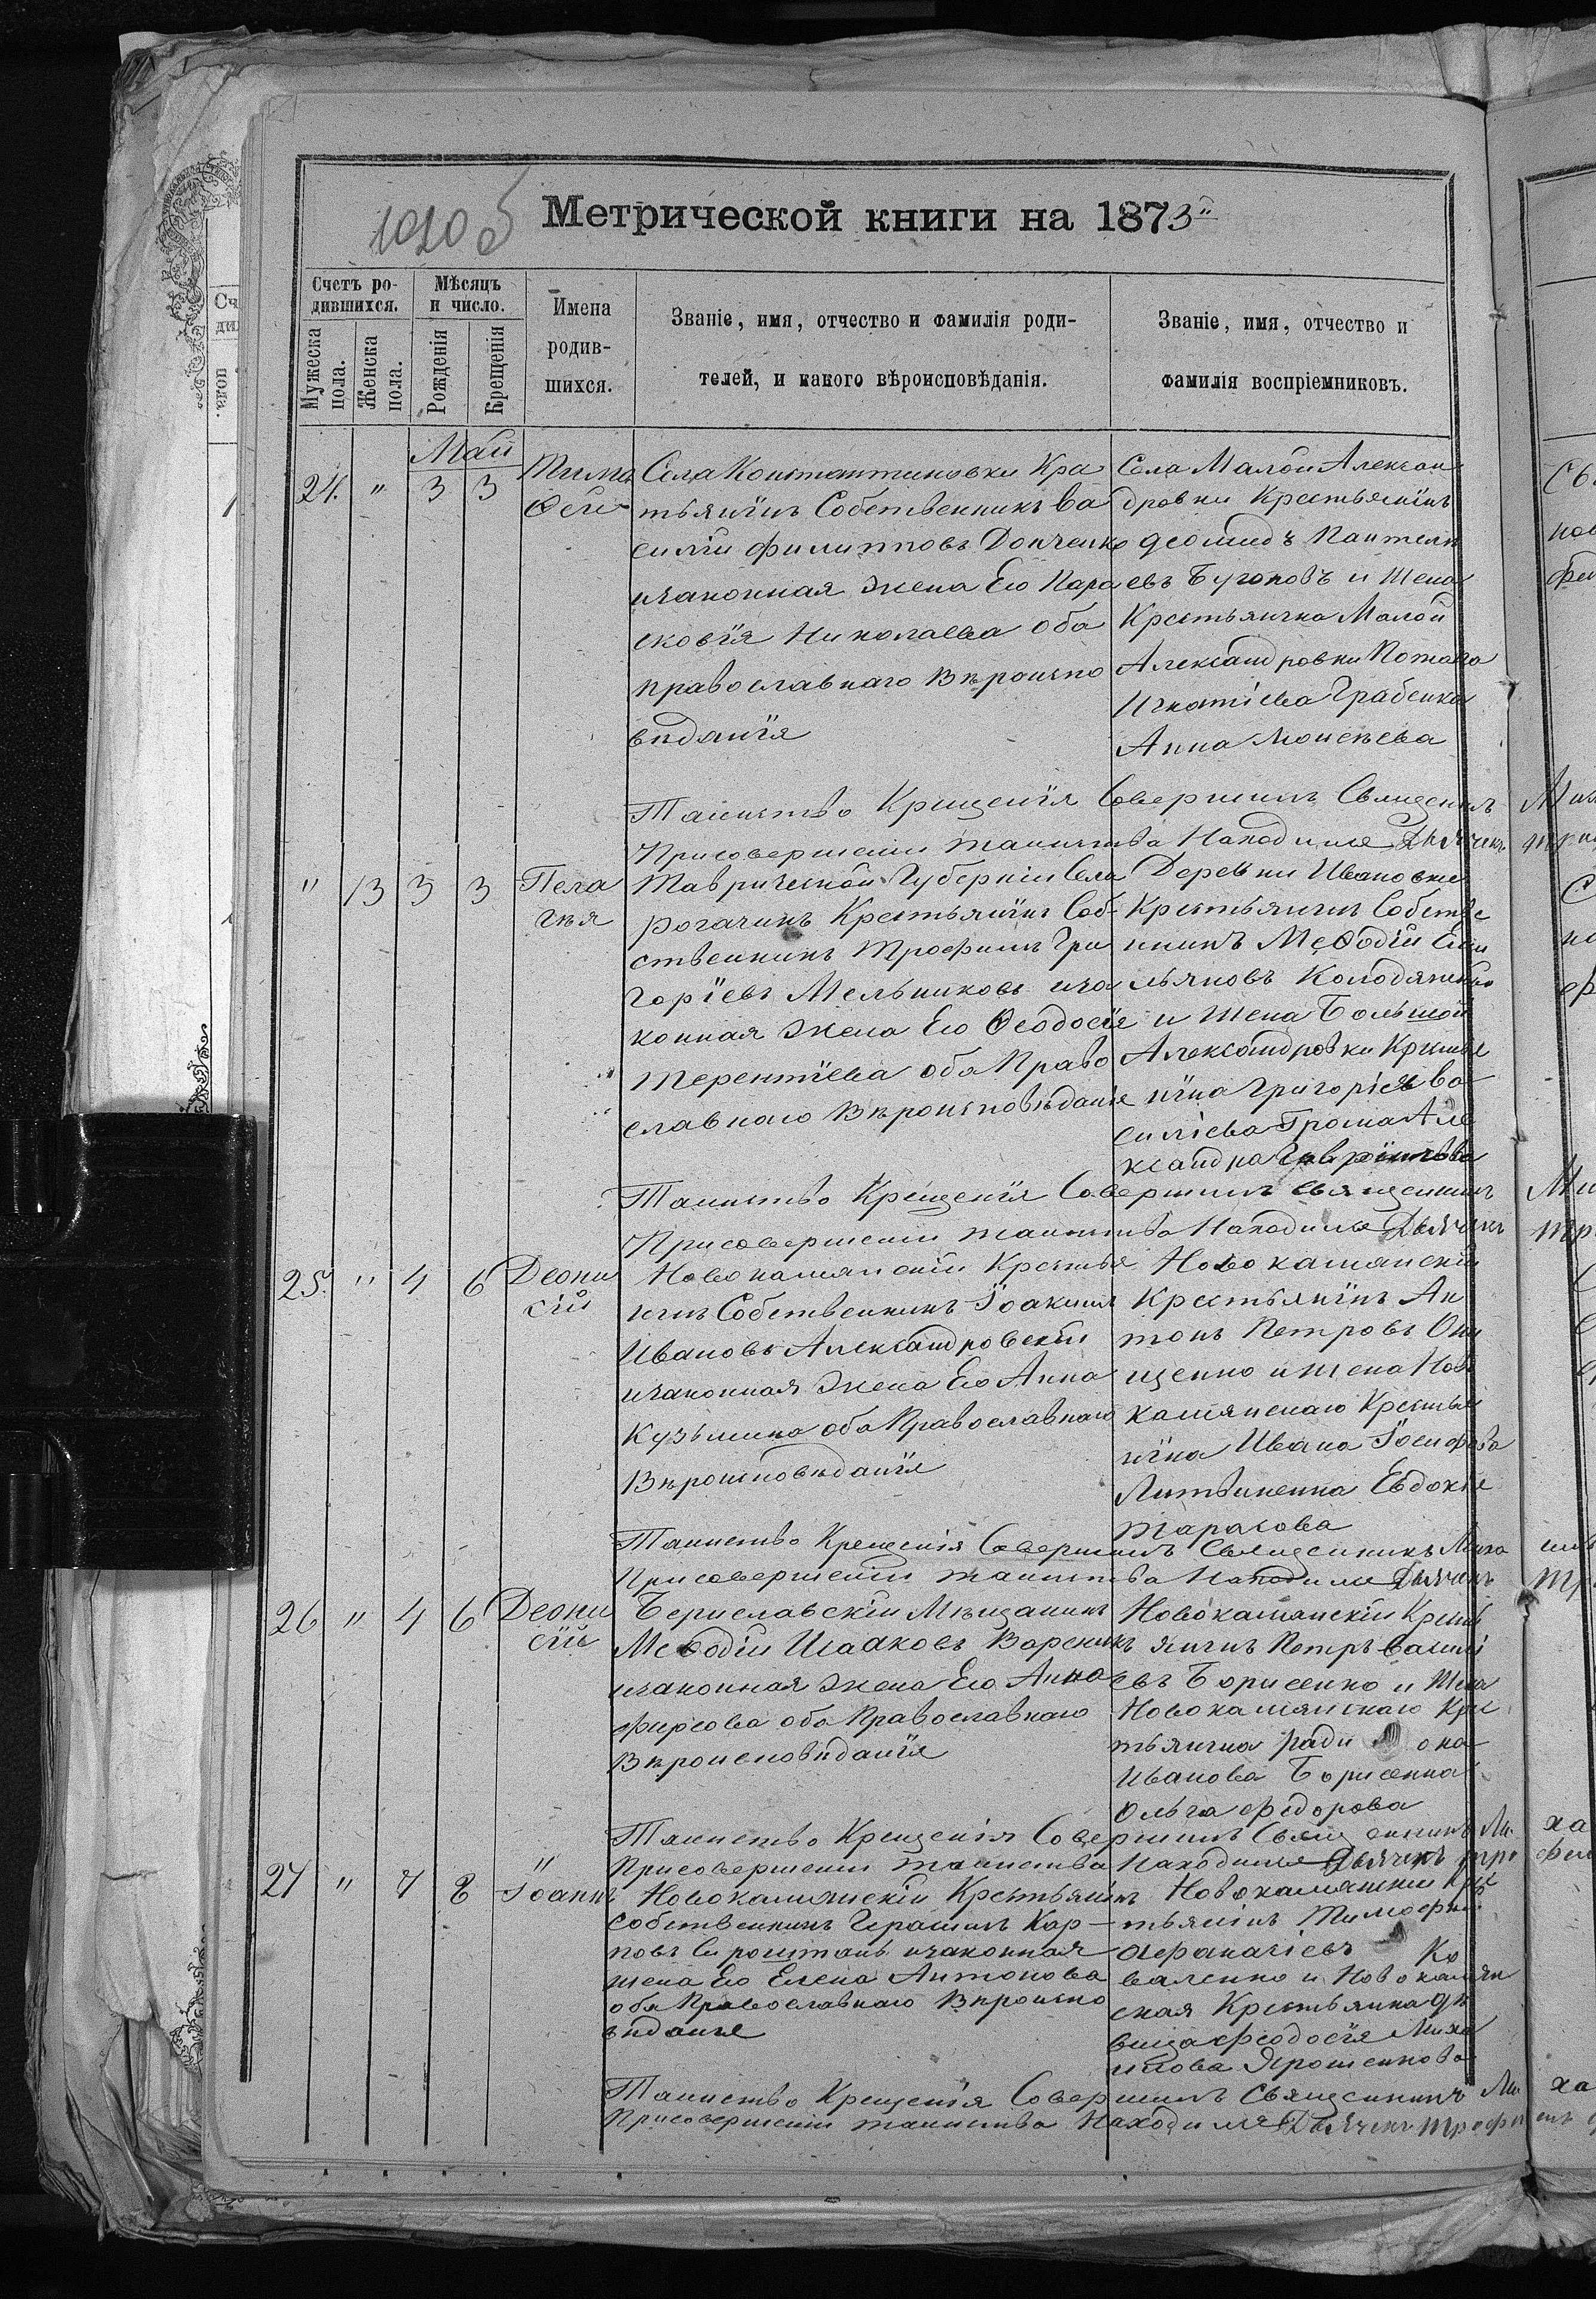 1020 б
Метрической книги на 1873
Счетъ ро-
дившихся.
Мужеска
пола.
Женска
пола.
Мѣсяцъ
и число.
Рожденія
Крещенія
Имена
родив-
шихся.
Званіе, имя, отчество и фамилія роди-
телей, и какого вѣроисповѣданія.
Званіе, имя, отчество и
фамилія воспріемниковъ.
Май
24. " 3 3
Тимо
ѳей
Села Константиновки Кре
тьянинъ Собственникъ Ва
силій Филипповъ Донченко
изаконная жена Его Пара
сковія Николаева оба
православнаго Вѣроиспо
вѣданія
Села Малой Алексан
дровки Крестьянинъ
Діомидъ Пантеле
евъ Бугоковъ и жена
Крестьянина Малой
Александровки Потапа
Игнатіева Грабенка
Анна Моисѣева
Таинство Крещенія Совершилъ Священикъ
Присовершеніи таинства Находился Дьячекъ
" 13 3 3
Пела
гѣя
Таврической Губерніи Села
рогачикъ Крестьянинъ Соб-
ственникъ Трофимъ Гри
горіевъ Мельниковъ иза
конная жена Его Ѳеодосія
Терентіева оба Право
славнаго Вѣроисповѣданія
Деревни Ивановки
Крестьянинъ Собстве
никъ Меѳодій Еми
льяновъ Колодяженко
и жена Большой
Александровки Крестья
нина Григорія Ва
силіева Грома Але
ксандра Гавріилова
Таинство Крещенія Совершилъ священикъ
Присовершеніи таинства Находился Дьячекъ
25. " 4 6
Деони
сій
Новокамянскій Крестья
нинъ Собственникъ Іоакимъ
Ивановъ Александровскій
изаконная жена Его Анна
Кузьмина оба Православнаго
Вѣроисповѣданія
Новокамянскій
Крестьянинъ Ан
тонъ Петровъ Они
щенко и жена Ново
камянскаго Крестья
нина Ивана Іосифова
Литвиненка Евдокія
Тарасова
Таинство Крещенія Совершилъ Священникъ Миха
Присовершеніи таинства Находился Дьячекъ
26 " 4 6
Деони
сій
Бериславскій Мѣщанинъ
Меѳодій Исааковъ Вареникъ
изаконная жена Его Анна
Фирсова оба Православнаго
Вѣроисповѣданія
Новокамянскій Кресть
янинъ Петръ Василі
евъ Борисенко и жена
Новокамянскаго Крес
тьянина ради она
Иванова Борисенка
Ольга Федорова
Таинство Крещенія Совершилъ Священникъ Ми
Присовершеніи таинства Находился Дьячекъ тро
27 " 7 8
Іоаннъ
Новокамянскій Крестьянинъ
Собственникъ Герасимъ Кар-
повъ изаконная
жена Его Елена Антонова
оба Православнаго Вѣроиспо
вѣданія
Новокамянскій Крес
тьянинъ Тимофей
Афанасіевъ Ко
валенко и Новокамян
ская Крестьянка дѣ
вица Феодосія Миха
илова Ярошенкова
Таинство Крещенія Совершилъ Священникъ Ми
Присовершеніи таинства Находился Дьячекъ Троф